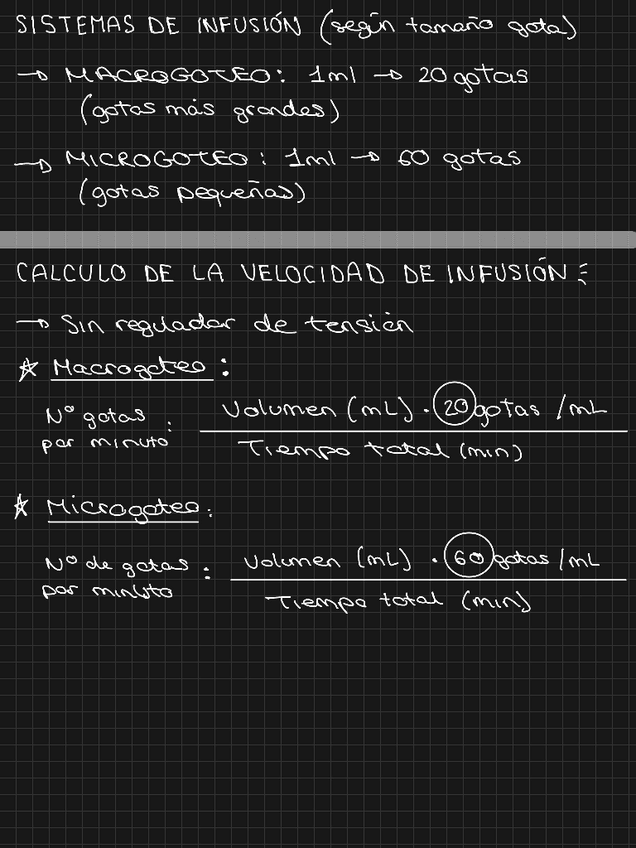 SISTEMAS DE INFUSIÓN (según tamaño gota)
→ MACROGOTEO: 1ml → 20 gotas
(gotas más grandes)
→ MICROGOTEO: 1ml → 60 gotas
(gotas pequeñas)
CALCULO DE LA VELOCIDAD DE INFUSIÓN:
→ Sin regulador de tensión
* Macrogoteo:
Nº gotas por minuto: Volumen (mL) · 20 gotas /mL
Tiempo total (min)
* Microgoteo:
Nº de gotas por minuto: Volumen (mL) · 60 gotas /mL
Tiempo total (min)